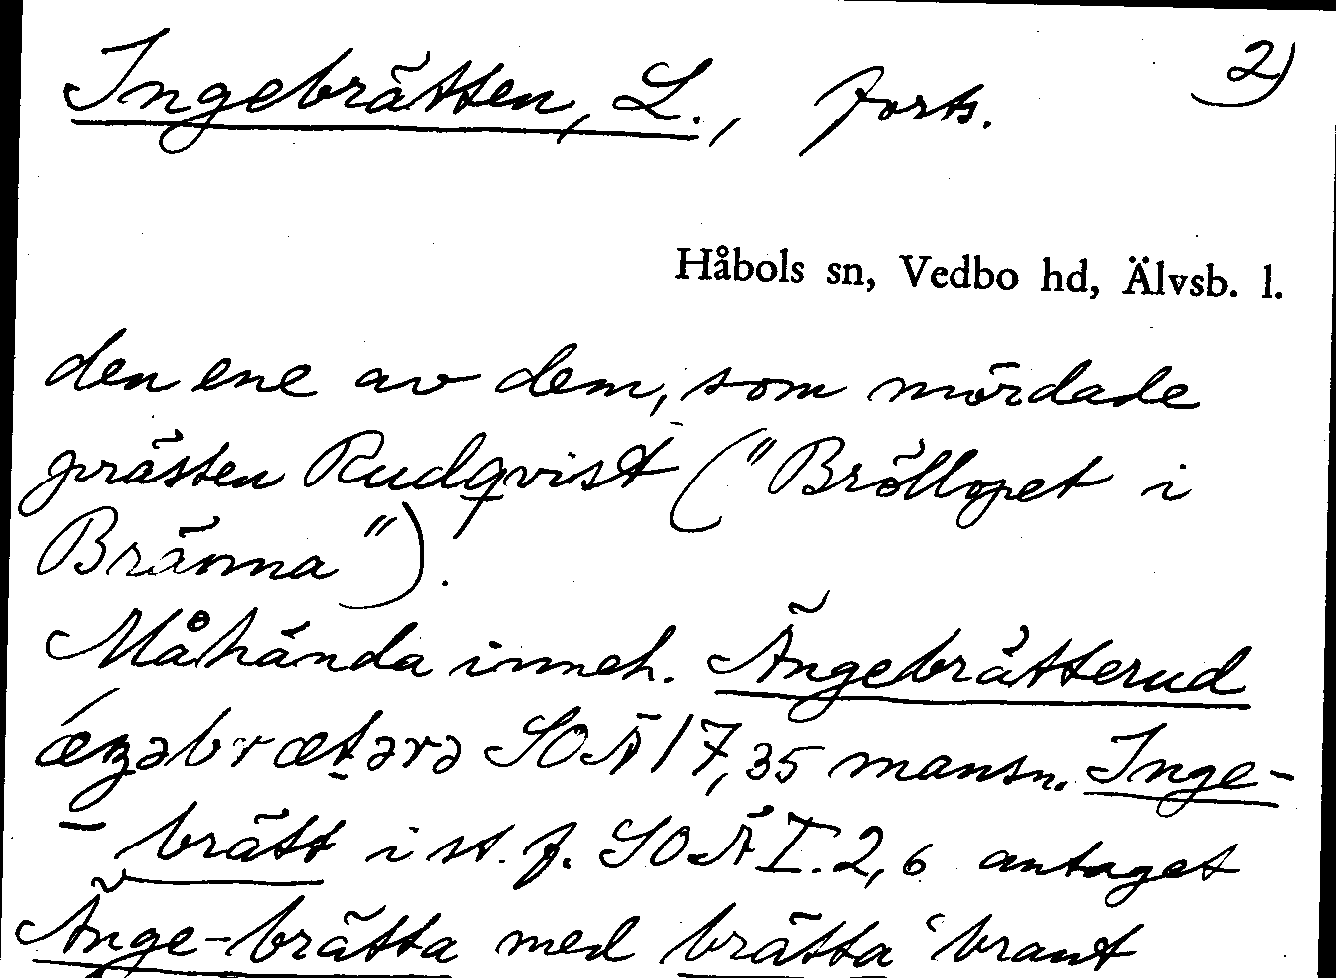 Ingebrätten, L., forts. 2)
Håbols sn, Vedbo hd, Älvsb. l.
den ene av dem, som mördade
prästen Rudqvist ("Bröllopet i
Bränna").
Måhända inneh. Ängebrätterud
SOÄ 17,35 mansn. Inge-
brätt i st. f. SOÄ I.2,6 antaget
Änge-brätta med brätta 'brant